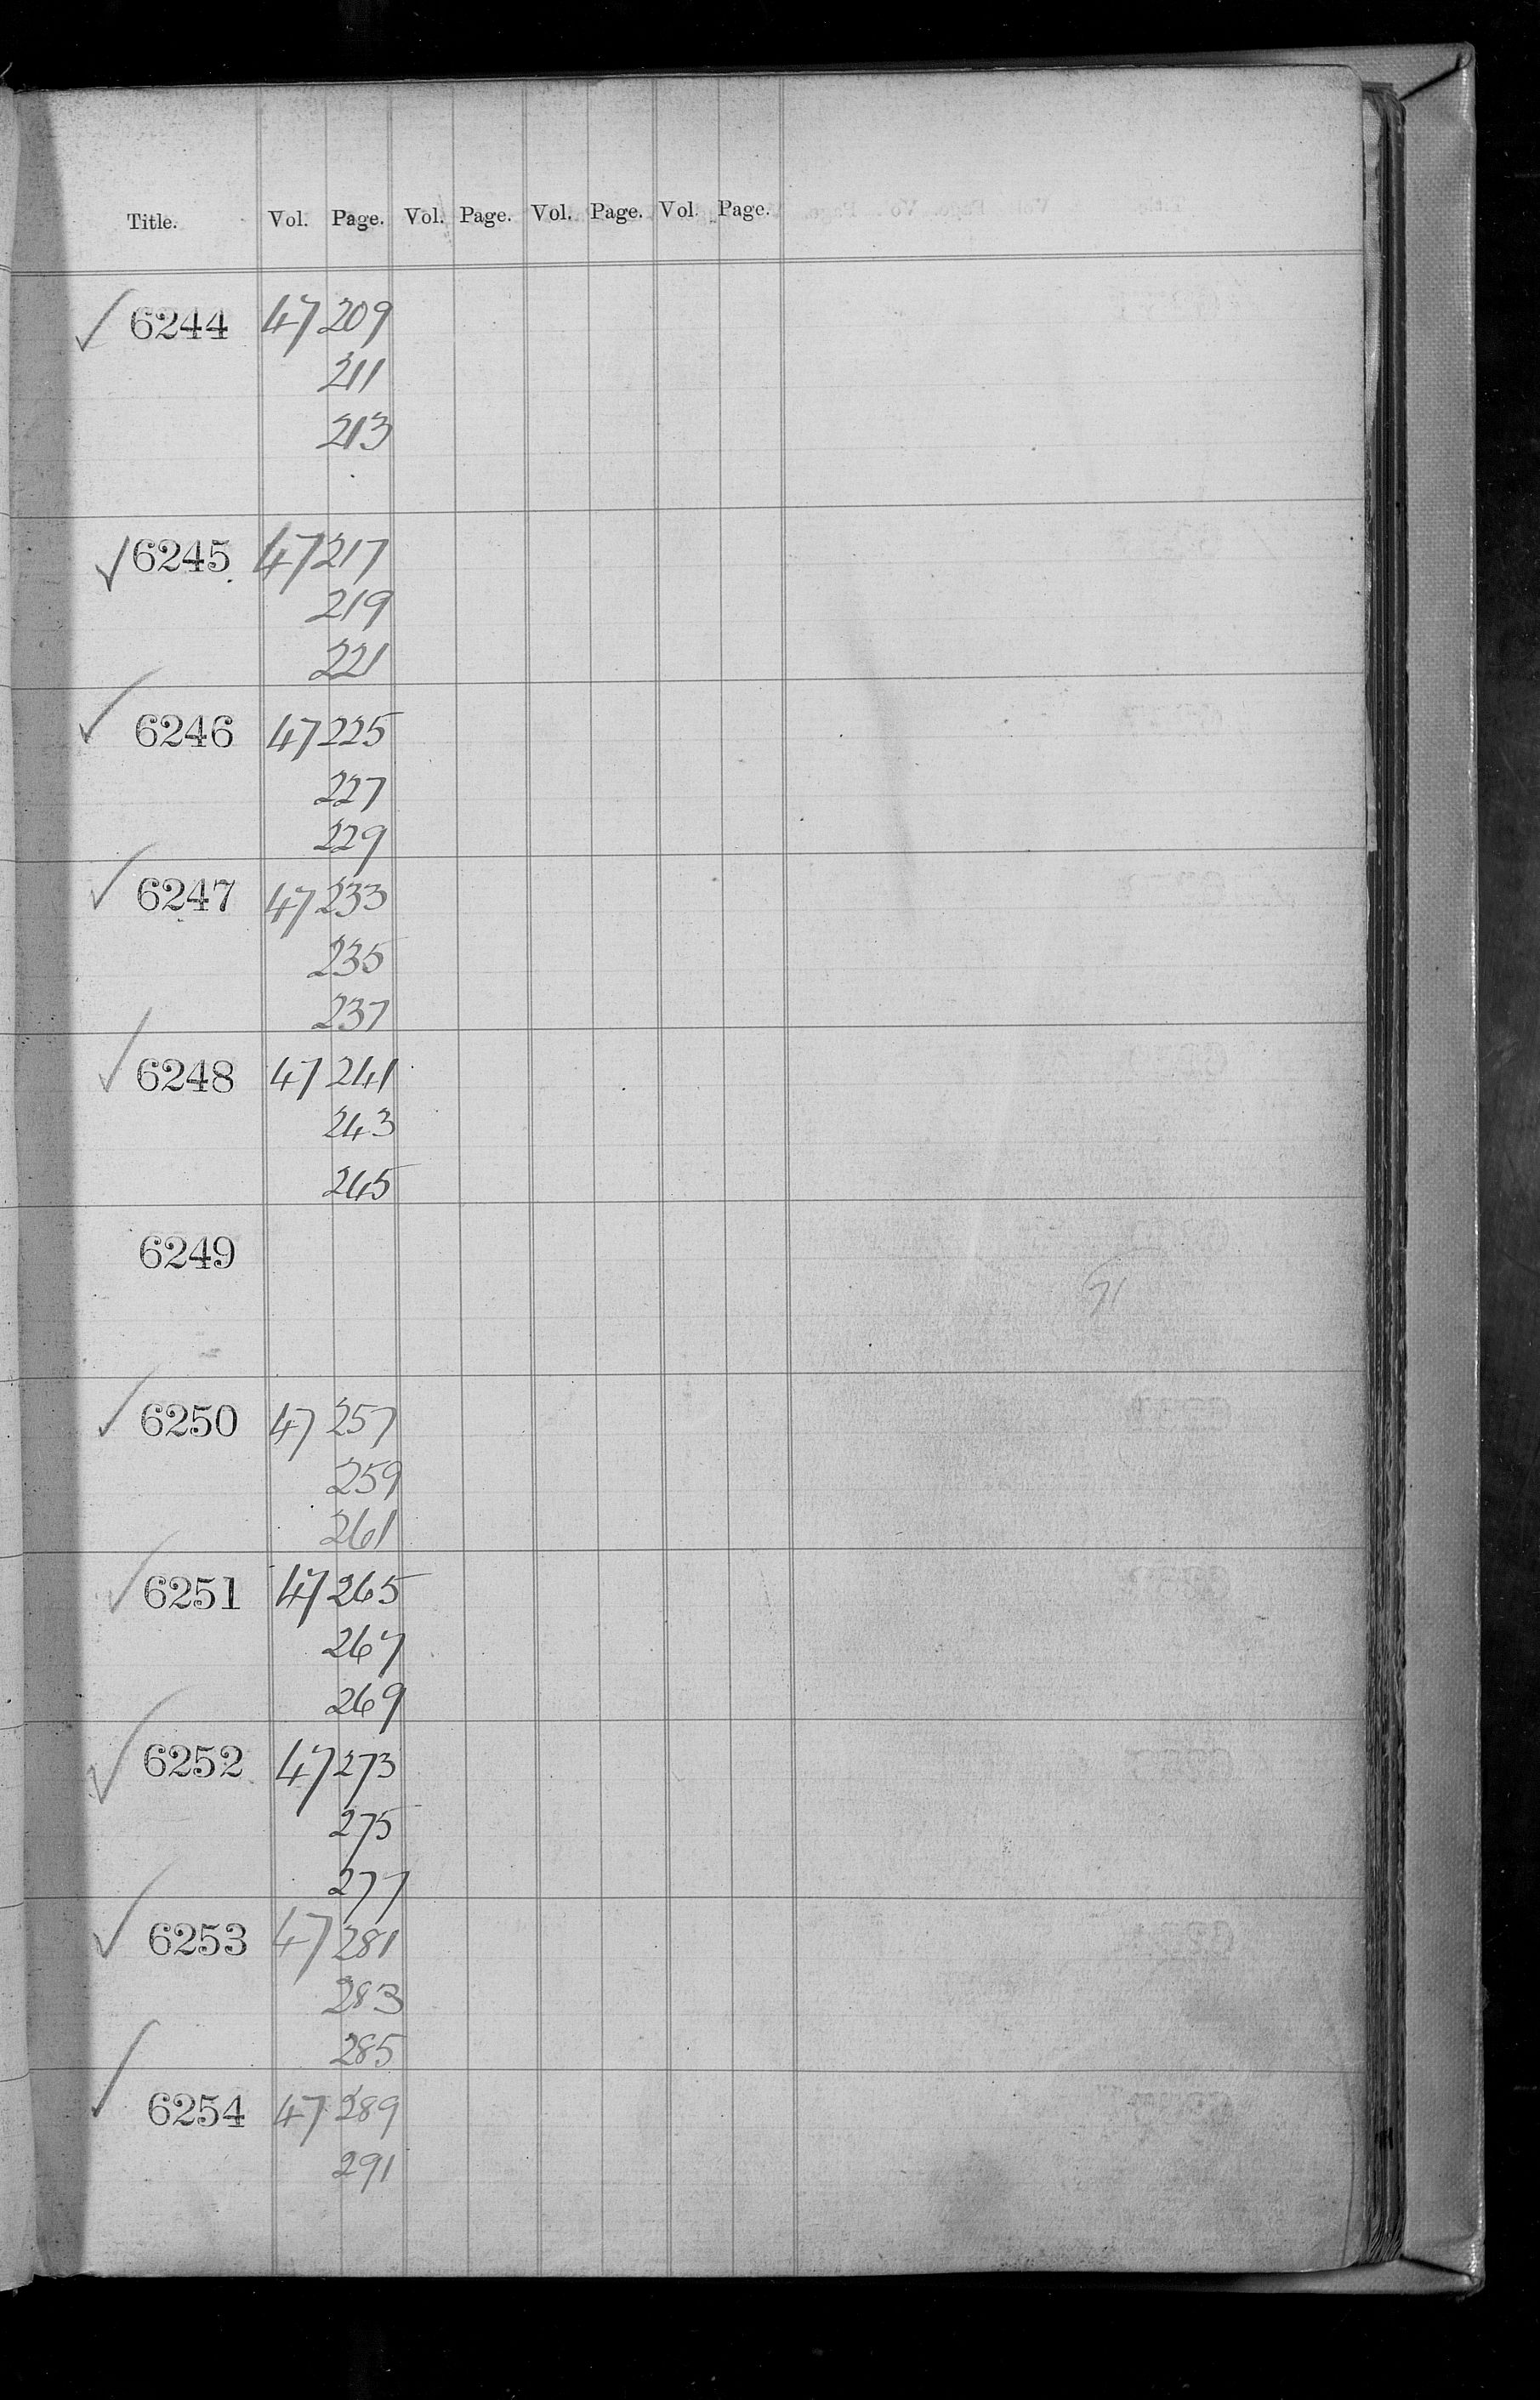 Title. Vol. Page. Vol. Page. Vol. Page. Vol. Page.
✓ 6244 47 209
211
213
✓ 6245 47 217
219
221
✓ 6246 47 225
227
229
✓ 6247 47 233
235
237
✓ 6248 47 241
243
245
6249
✓ 6250 47 257
259
261
✓ 6251 47 265
267
269
✓ 6252 47 273
275
277
✓ 6253 47 281
283
285
✓ 6254 47 289
291